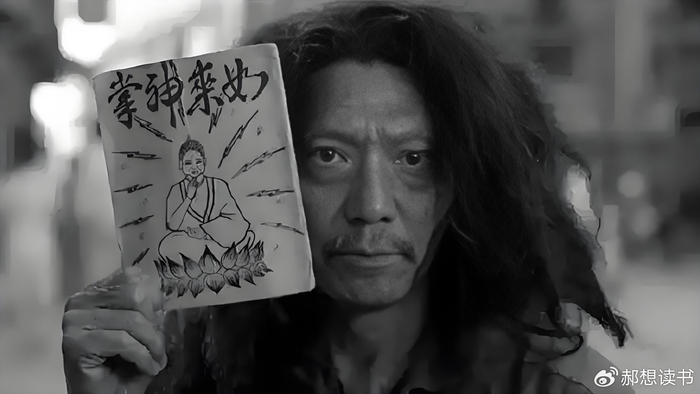 如來神掌
郝想读书